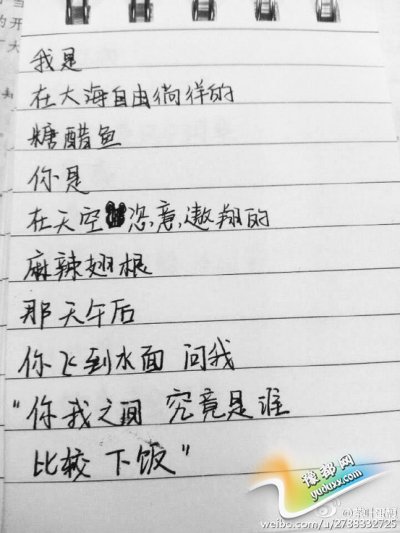 我是
在大海自由徜徉的
糖醋鱼
你是
在天空恣意遨翔的
麻辣翅根
那天午后
你飞到水面 问我
“你我之间 究竟是谁
比较 下饭”
豫都网
yuduxx.com
weibo.com/u/2733332725